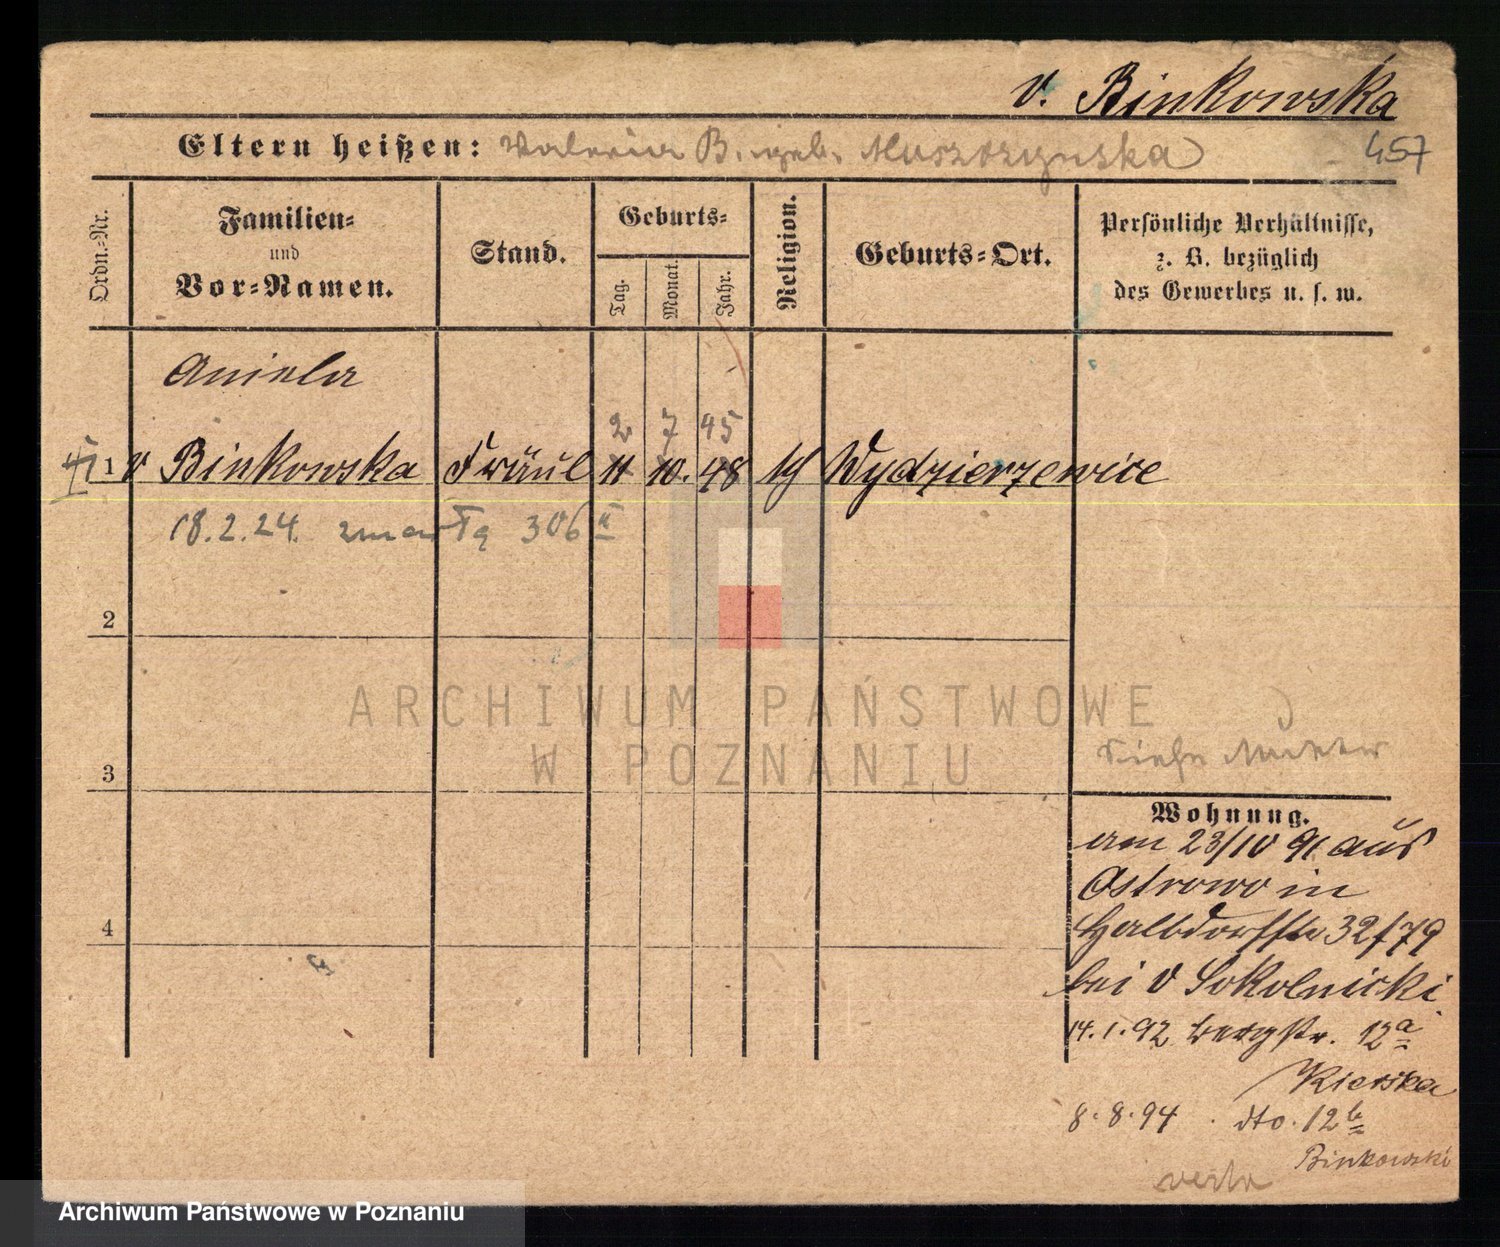 v. Binkowska
Eltern heißen: Valeria B. geb. Moszczynska
457
Ordn.=Nr.
Familien=
und
Vor=Namen.
Stand.
Geburts=
Tag.
Monat.
Jahr.
Religion.
Geburts=Ort.
Persönliche Verhältnisse,
z. B. bezüglich
des Gewerbes u. s. w.
Aniela
2 7 45
1 v Binkowska Fräul 11 10. 48 kf Wydzierzewice
18.2.24. zmarła 306 II
2
ARCHIWUM PAŃSTWOWE
W POZNANIU
Siehe Mutter
3
Wohnung.
am 23/10 91 aus
Ostrowo in
4
Halbdorfstr 32/79
bei v Sokolnicki
14.1.92 Bergstr. 12a
8.8.94 dto. 12b
Binkowski
Archiwum Państwowe w Poznaniu